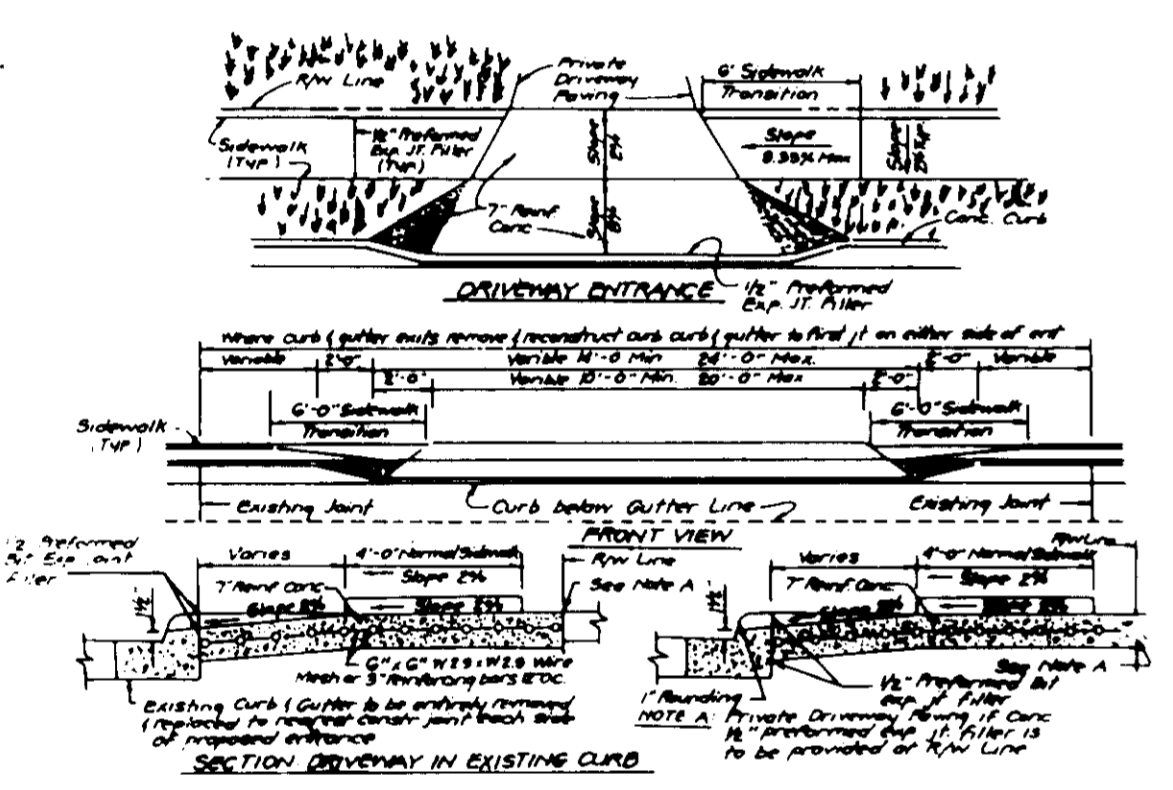 Private
Driveway
Paving
6' Sidewalk
Transition
R/W Line
Sidewalk
(Typ)
1/2" Preformed
Exp. JT. Filler
(Typ)
Slope
2%
Slope
8.33% Max
Slope
2% Typ.
7" Reinf
Conc
Slope
8%
Conc. Curb
DRIVEWAY ENTRANCE
1/2" Preformed
Exp. JT. Filler
Where curb & gutter exits remove & reconstruct curb curb & gutter to first jt on either side of ent
Variable
2'-0"
Varible 14'-0 Min 24'-0" Max.
2'-0"
Variable
2'-0"
Varible 10'-0" Min. 20'-0" Max
2'-0"
6'-0" Sidewalk
Transition
6'-0" Sidewalk
Transition
Sidewalk
(Typ)
Existing Joint
Curb below Gutter Line
Existing Joint
FRONT VIEW
1/2 Preformed
Bit Exp Joint
Filler
Varies
4'-0" Normal Sidewalk
Slope 2%
R/W Line
See Note A
7" Reinf Conc
Slope 8%
Slope 2%
1 1/2"
6" x 6" W2.9 x W2.9 Wire
Mesh or 3" Reinforcing bars 12" O.C.
Existing Curb & Gutter to be entirely removed
& replaced to nearest constr joint each side
of proposed entrance
SECTION DRIVEWAY IN EXISTING CURB
R/W Line
Varies
4'-0" Normal Sidewalk
Slope 2%
7" Reinf Conc
Slope 8%
Slope 2%
1 1/2"
See Note A
1/2" Preformed Bit
exp jt filler
1" Rounding
NOTE A: Private Driveway Paving if Conc
1/2" preformed exp jt. filler is
to be provided at R/W Line